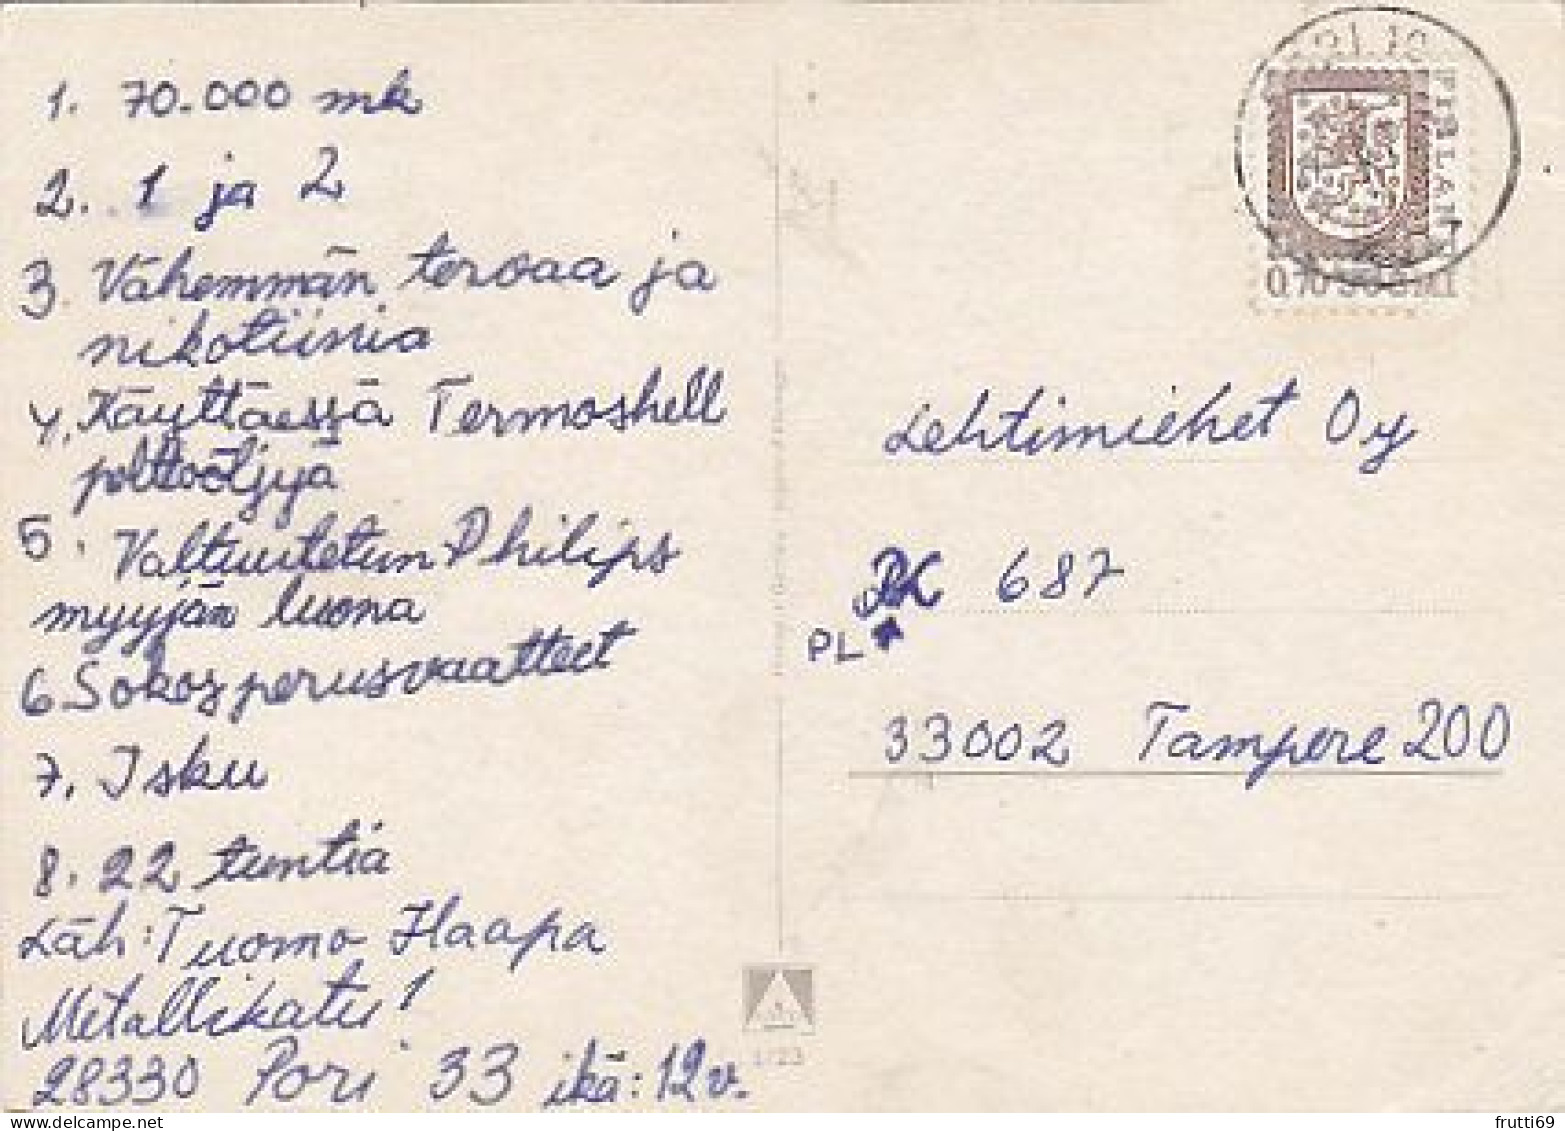 1. 70.000 mk
2. 1 ja 2
3. Vähemmän tervaa ja
nikotiinia
4. Käyttäessä Termoshell
polttoöljyä
5. Valtuutetun Philips
myyjän luona
6 Sokos perusvaatteet
7. Isku
8. 22 tuntia
Läh: Tuomo Haapa
Metallikatu 1
28330 Pori 33 ikä: 12 v.
FINLAND
0,70 SUOMI
Lehtimiehet Oy
PK 687
PL
33002 Tampere 200
frutti69